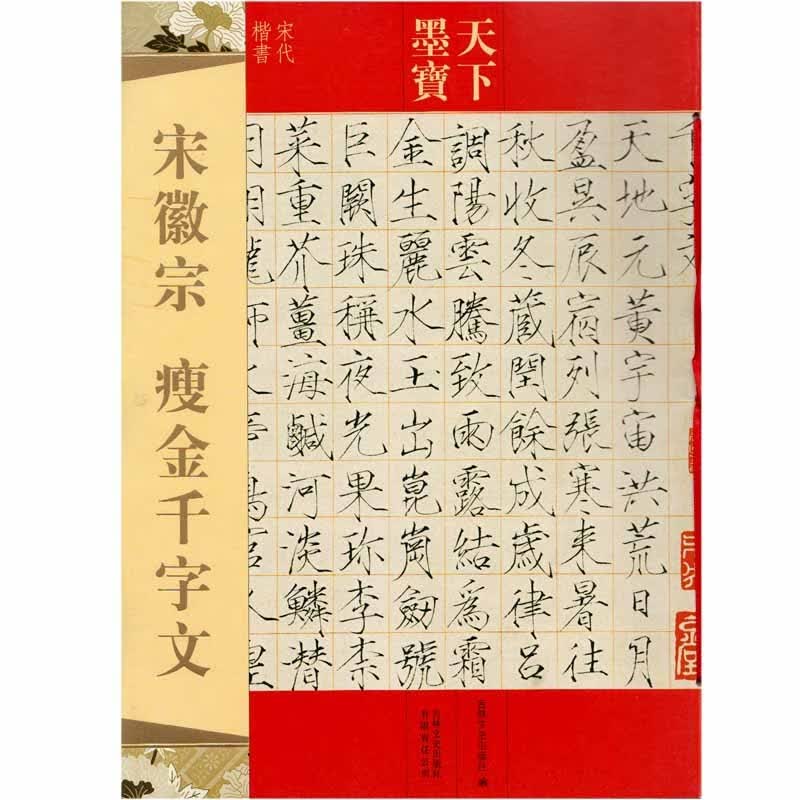 天下
墨寶
宋代
楷書
宋徽宗 瘦金千字文
千字文
天地元黃宇宙洪荒日月
盈昃辰宿列張寒來暑往
秋收冬藏閏餘成歲律呂
調陽雲騰致雨露結爲霜
金生麗水玉出崑崗劍號
巨闕珠稱夜光果珍李柰
菜重芥薑海鹹河淡鱗潛
吉林文史出版社